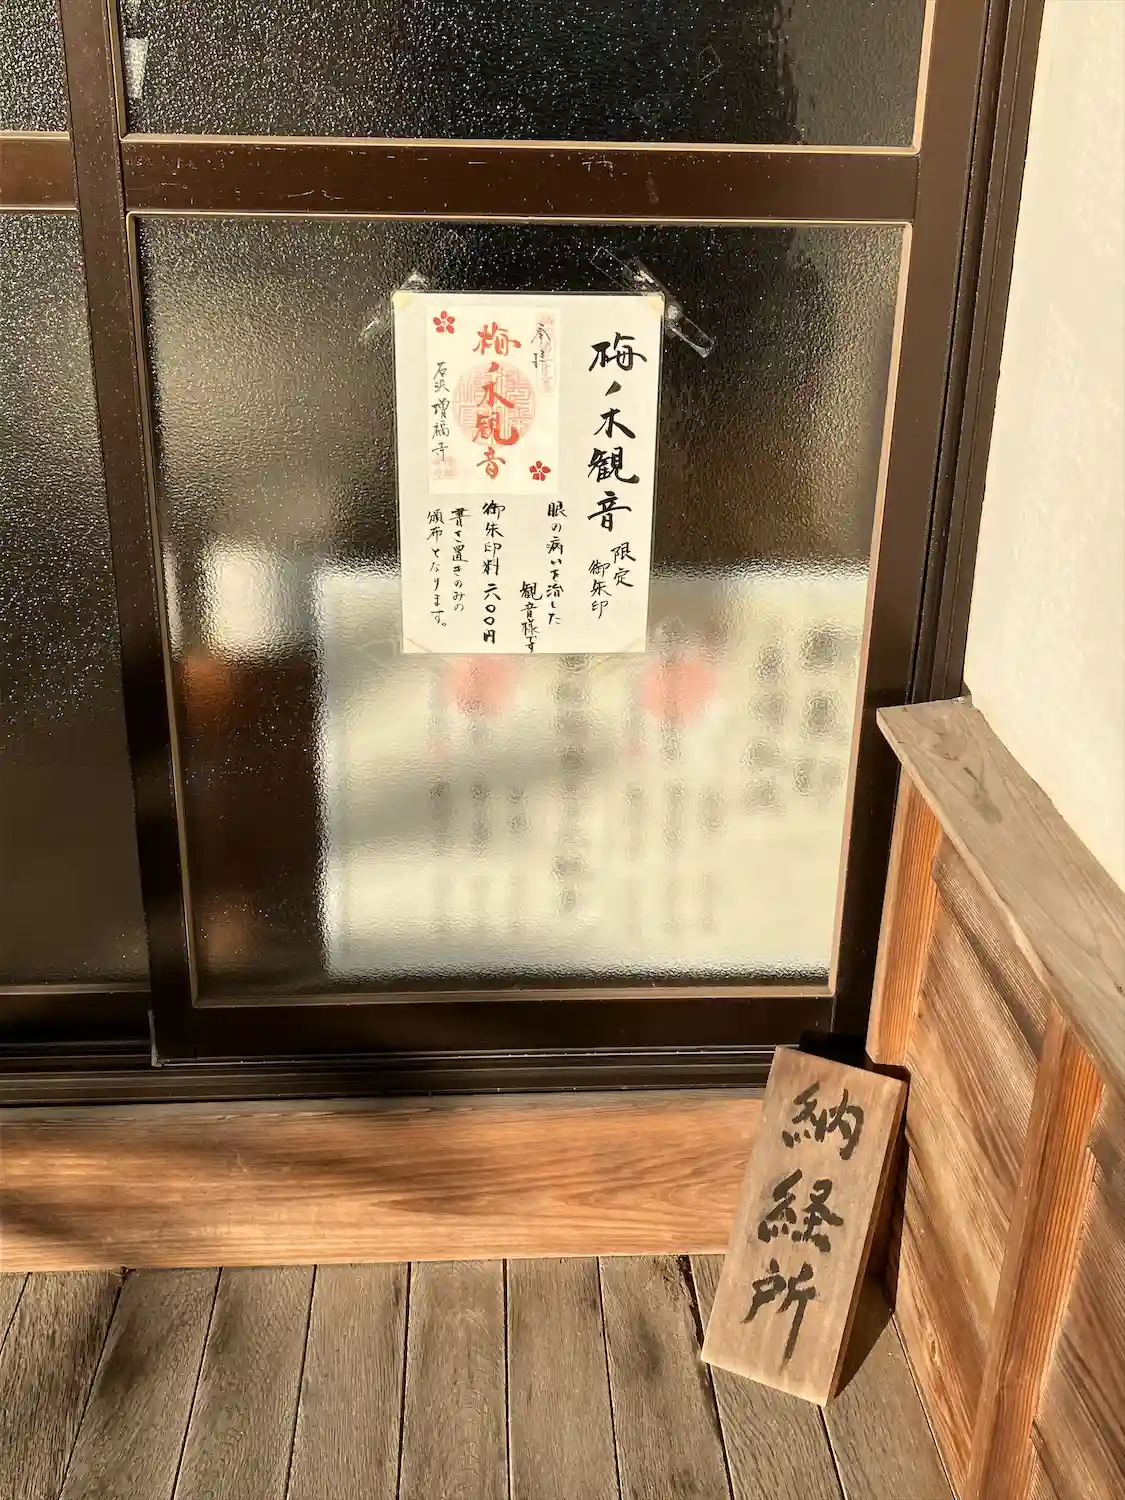 梅ノ木観音
限定
御朱印
眼の病いを治した
観音様です
御朱印料 六〇〇円
書き置きのみの
頒布となります。
奉拝
梅ノ木観音
石浜 増福寺
納経所